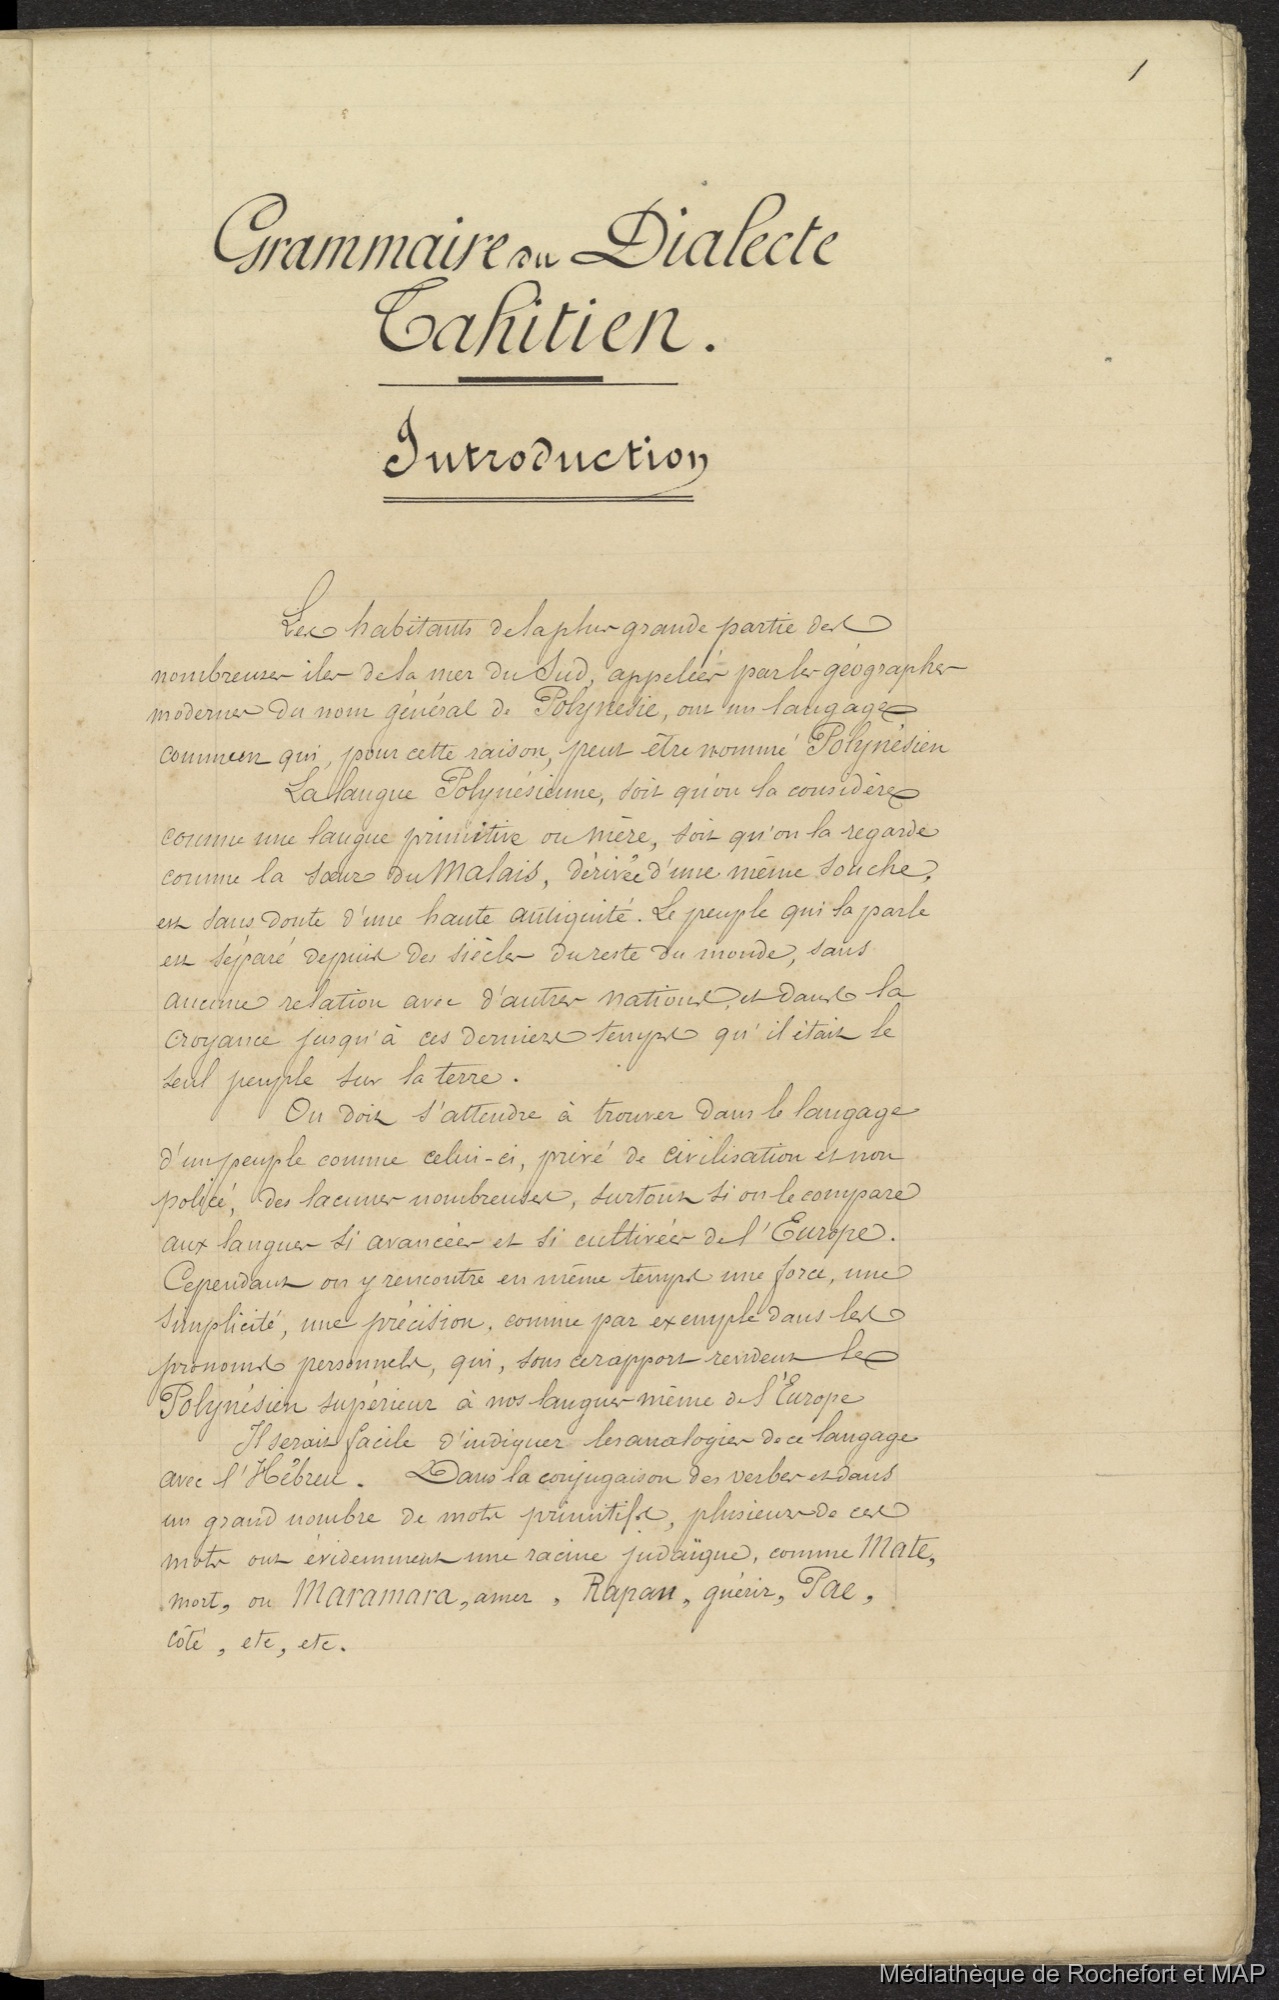 1
Grammaire du Dialecte
Tahitien.
Introduction
Les habitants de la plus grande partie des
nombreuses iles de la mer du Sud, appelées par les géographes
modernes du nom général de Polynesie, ont un langage
commun qui, pour cette raison, peut être nommé Polynésien
La langue Polynésienne, soit qu'on la considère
comme une langue primitive ou mère, soit qu'on la regarde
comme la sœur du Malais, dérivée d'une même souche,
est sans doute d'une haute antiquité. Le peuple qui la parle
est séparé depuis des siècles du reste du monde, sans
aucune relation avec d'autres nations, et dans la
croyance jusqu'à ces derniers temps qu'il était le
seul peuple sur la terre.
On doit s'attendre à trouver dans le langage
d'un peuple comme celui-ci, privé de civilisation et non
policé, des lacunes nombreuses, surtout si on le compare
aux langues si avancées et si cultivées de l'Europe.
Cependant on y rencontre en même temps une force, une
simplicité, une précision, comme par exemple dans les
pronoms personnels, qui, sous ce rapport rendent le
Polynésien supérieur à nos langues même de l'Europe
Il serait facile d'indiquer les analogies de ce langage
avec l'Hébreu. Dans la conjugaison des verbes et dans
un grand nombre de mots primitifs, plusieurs de ces
mots ont évidemment une racine judaïque, comme Mate,
mort, ou Maramara, amer, Rapau, guérir, Pae,
côté, etc, etc.
Médiathèque de Rochefort et MAP